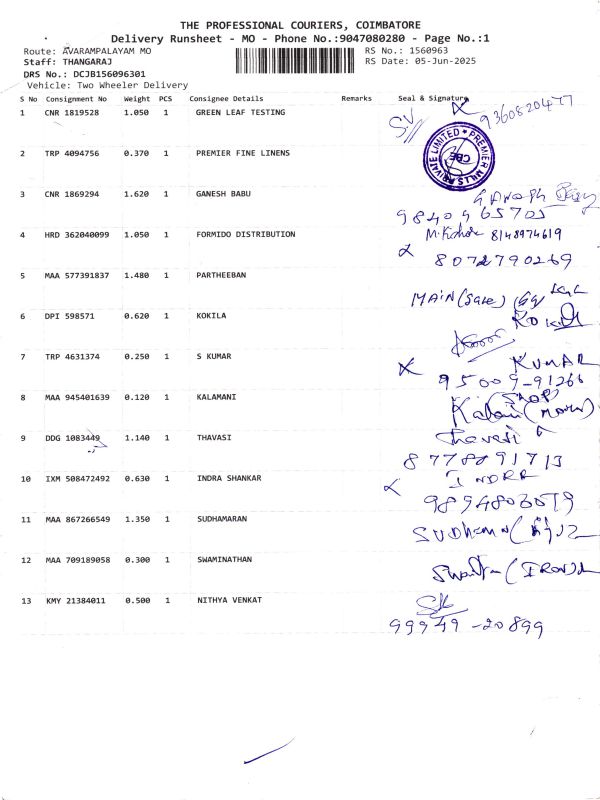 THE PROFESSIONAL COURIERS, COIMBATORE
Delivery Runsheet - MO - Phone No.:9047080280 - Page No.:1
Route: AVARAMPALAYAM MO RS No.: 1560963
Staff: THANGARAJ RS Date: 05-Jun-2025
DRS No.: DCJB156096301
Vehicle: Two Wheeler Delivery
S No Consignment No Weight PCS Consignee Details Remarks Seal & Signature
1 CNR 1819528 1.050 1 GREEN LEAF TESTING S.V 9360820477
PREMIER MILLS PRIVATE LIMITED CBE
2 TRP 4094756 0.370 1 PREMIER FINE LINENS
3 CNR 1869294 1.620 1 GANESH BABU
9840965705
4 HRD 362040099 1.050 1 FORMIDO DISTRIBUTION 8148974619
8072790269
5 MAA 577391837 1.480 1 PARTHEEBAN
MAIN (Gate)
6 DPI 598571 0.620 1 KOKILA
7 TRP 4631374 0.250 1 S KUMAR KUMAR
95009-91266
8 MAA 945401639 0.120 1 KALAMANI
9 DDG 1083449 1.140 1 THAVASI Thavasi
8778891713
10 IXM 508472492 0.630 1 INDRA SHANKAR
11 MAA 867266549 1.350 1 SUDHAMARAN
12 MAA 709189058 0.300 1 SWAMINATHAN
13 KMY 21384011 0.500 1 NITHYA VENKAT SK
99949-20899